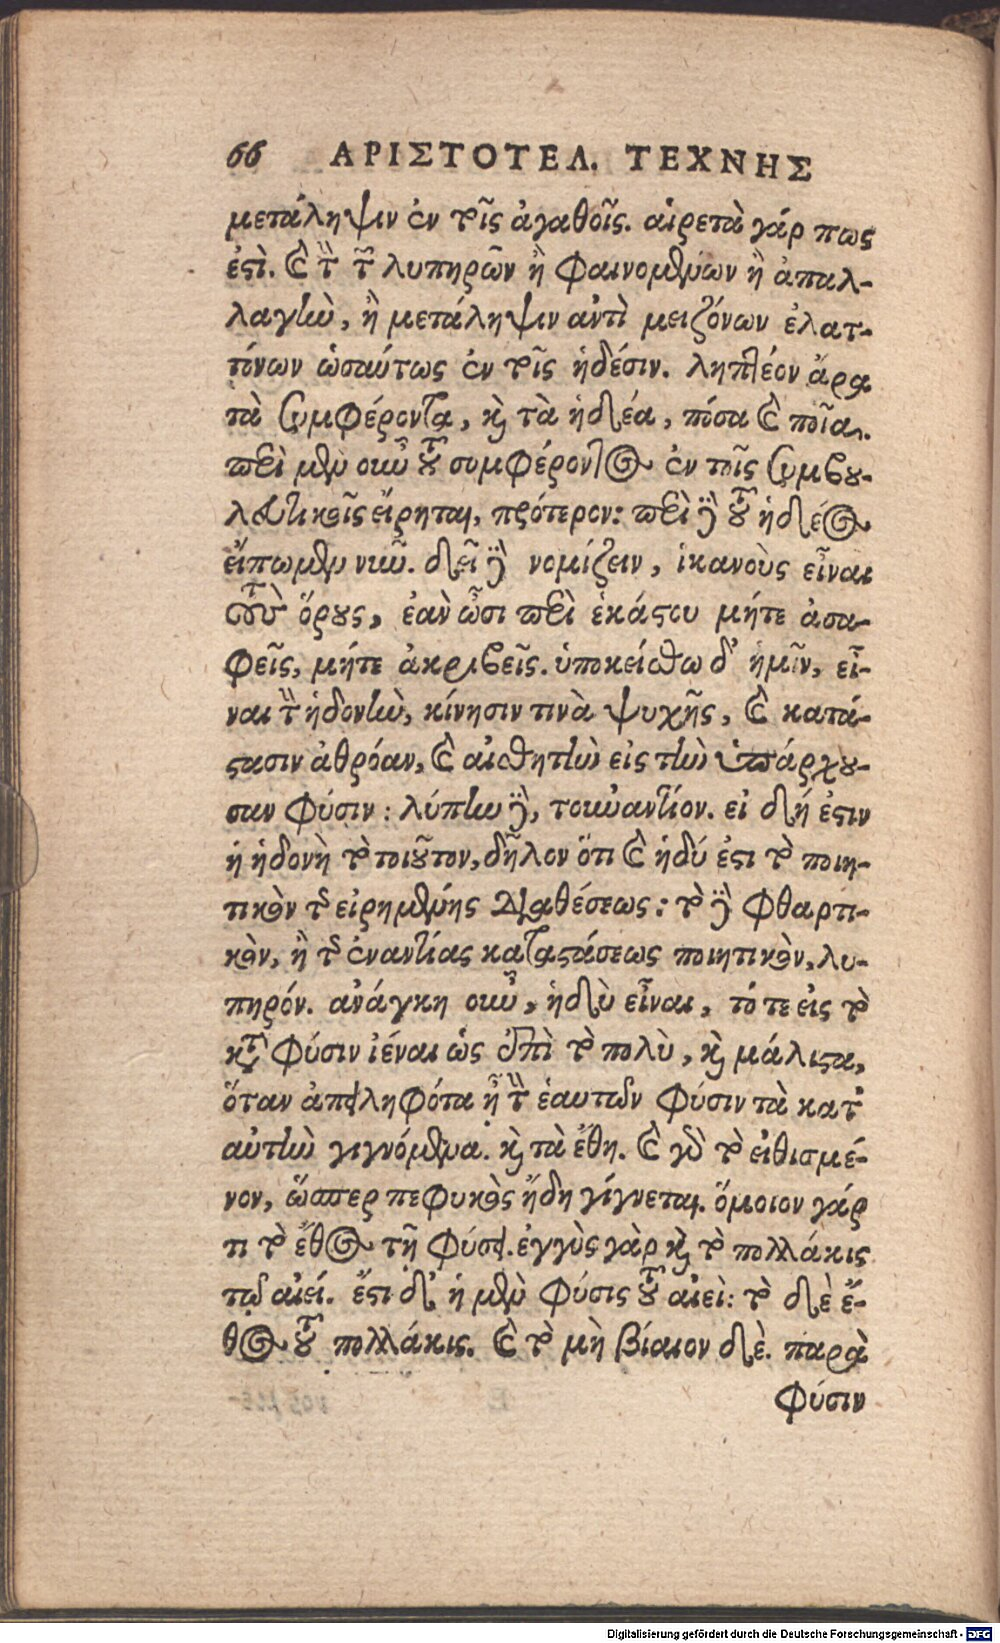 66 ΑΡΙΣΤΟΤΕΛ. ΤΕΧΝΗΣ
μετάληψιν ἐν τοῖς ἀγαθοῖς. αἱρετὰ γάρ πως
ἐστὶ. καὶ τὴν τῶν λυπηρῶν ἢ φαινομένων ἢ ἀπαλ-
λαγὴν, ἢ μετάληψιν ἀντὶ μειζόνων ἐλατ-
τόνων ὡσαύτως ἐν τοῖς ἡδέσιν. ληπτέον ἄρα
τὰ συμφέροντα, καὶ τὰ ἡδέα, πόσα καὶ ποῖα.
περὶ μὲν οὖν τοῦ συμφέροντος ἐν τοῖς συμβου-
λευτικοῖς εἴρηται, πρότερον: περὶ δὲ τοῦ ἡδέος
εἴπωμεν νῦν. δεῖ δὲ νομίζειν, ἱκανοὺς εἶναι
τοὺς ὅρους, ἐὰν ὦσι περὶ ἑκάστου μήτε ἀσα-
φεῖς, μήτε ἀκριβεῖς. ὑποκείσθω δ' ἡμῖν, εἶ-
ναι τὴν ἡδονὴν, κίνησιν τινὰ ψυχῆς, καὶ κατά-
στασιν ἀθρόαν, καὶ αἰσθητὴν εἰς τὴν ὑπάρχου-
σαν φύσιν: λύπην δὲ, τοὐναντίον. εἰ δή ἐστιν
ἡ ἡδονὴ τὸ τοιοῦτον, δῆλον ὅτι καὶ ἡδύ ἐστι τὸ ποιη-
τικὸν τῆς εἰρημένης διαθέσεως: τὸ δὲ φθαρτι-
κὸν, ἢ τῆς ἐναντίας καταστάσεως ποιητικὸν, λυ-
πηρόν. ἀνάγκη οὖν, ἡδὺ εἶναι, τό τε εἰς τὸ
κατὰ φύσιν ἰέναι ὡς ἐπὶ τὸ πολὺ, καὶ μάλιστα,
ὅταν ἀπειληφότα ᾖ τὴν ἑαυτῶν φύσιν τὰ κατ'
αὐτὴν γιγνόμενα. καὶ τὰ ἔθη. καὶ γὰρ τὸ εἰθισμέ-
νον, ὥσπερ πεφυκὸς ἤδη γίγνεται. ὅμοιον γάρ
τι τὸ ἔθος τῇ φύσει. ἐγγὺς γὰρ καὶ τὸ πολλάκις
τῷ αἰεί. ἔστι δ' ἡ μὲν φύσις τοῦ αἰεὶ: τὸ δὲ ἔ-
θος τοῦ πολλάκις. καὶ τὸ μὴ βίαιον δὲ. παρὰ
φύσιν
Digitalisierung gefördert durch die Deutsche Forschungsgemeinschaft - DFG